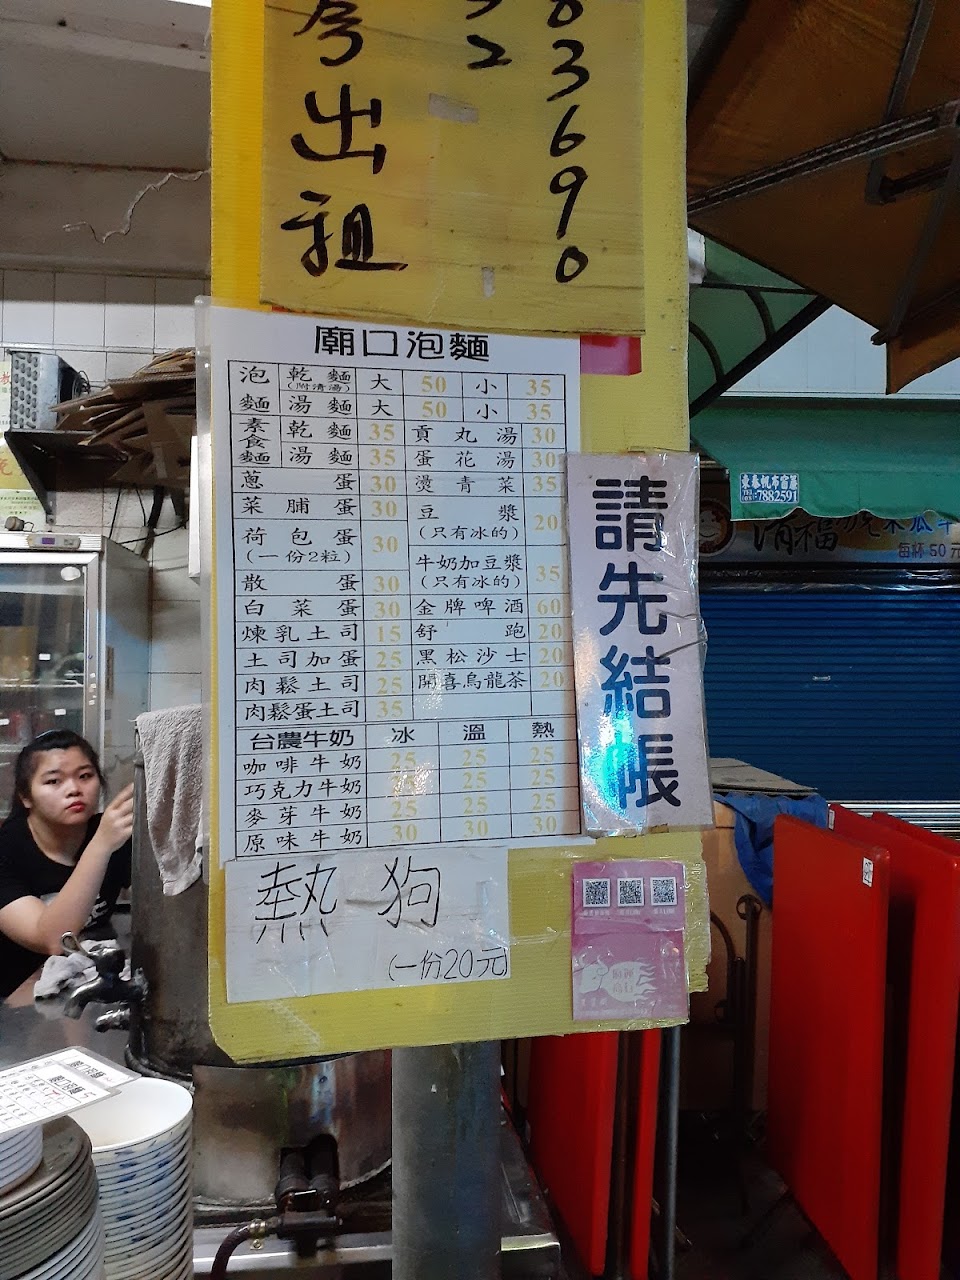 出
租
2
83690
廟口泡麵
泡麵 乾麵(附清湯) 大 50 小 35
湯麵 大 50 小 35
素食麵 乾麵 35 貢丸湯 30
湯麵 35 蛋花湯 30
蔥蛋 30 燙青菜 35
菜脯蛋 30 豆漿(只有冰的) 20
荷包蛋(一份2粒) 30 牛奶加豆漿(只有冰的) 35
散蛋 30
白菜蛋 30 金牌啤酒 60
煉乳土司 15 舒跑 20
土司加蛋 25 黑松沙士 20
肉鬆土司 25 開喜烏龍茶 20
肉鬆蛋土司 35
台農牛奶 冰 溫 熱
咖啡牛奶 25 25 25
巧克力牛奶 25 25 25
麥芽牛奶 25 25 25
原味牛奶 30 30 30
熱狗
(一份20元)
請先結帳
東泰帆布雷蓬
7882591
木瓜牛
每杯50元
廟口泡麵
廟口泡麵